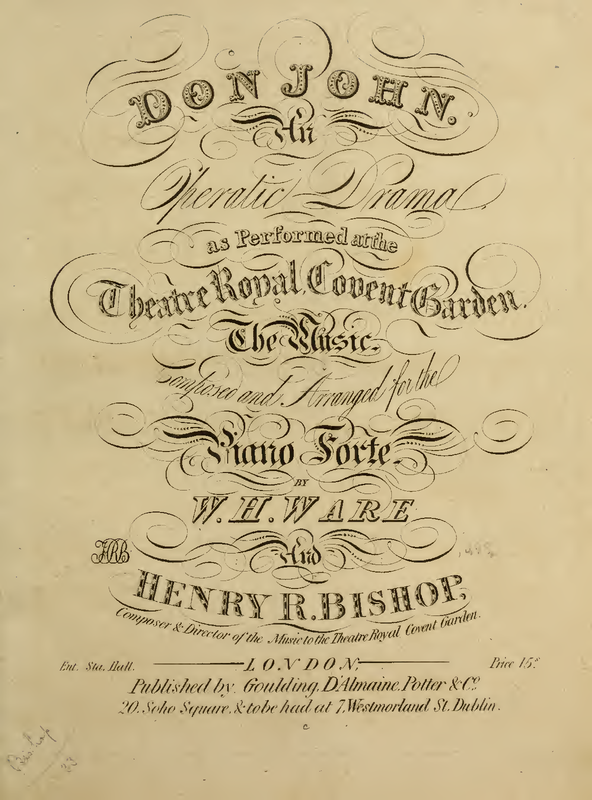 DON JOHN.
An
Operatic Drama,
as Performed at the
Theatre Royal, Covent Garden.
The Music,
Composed and Arranged for the
Piano Forte.
BY
W. H. WARE
And
HRB
HENRY R. BISHOP,
Composer & Director of the Music to the Theatre Royal Covent Garden.
Ent. Sta. Hall. LONDON; Price 15s
Published by, Goulding, D'Almaine, Potter & Co.
20, Soho Square, & to be had at 7, Westmorland St. Dublin.
c
Bishop
33